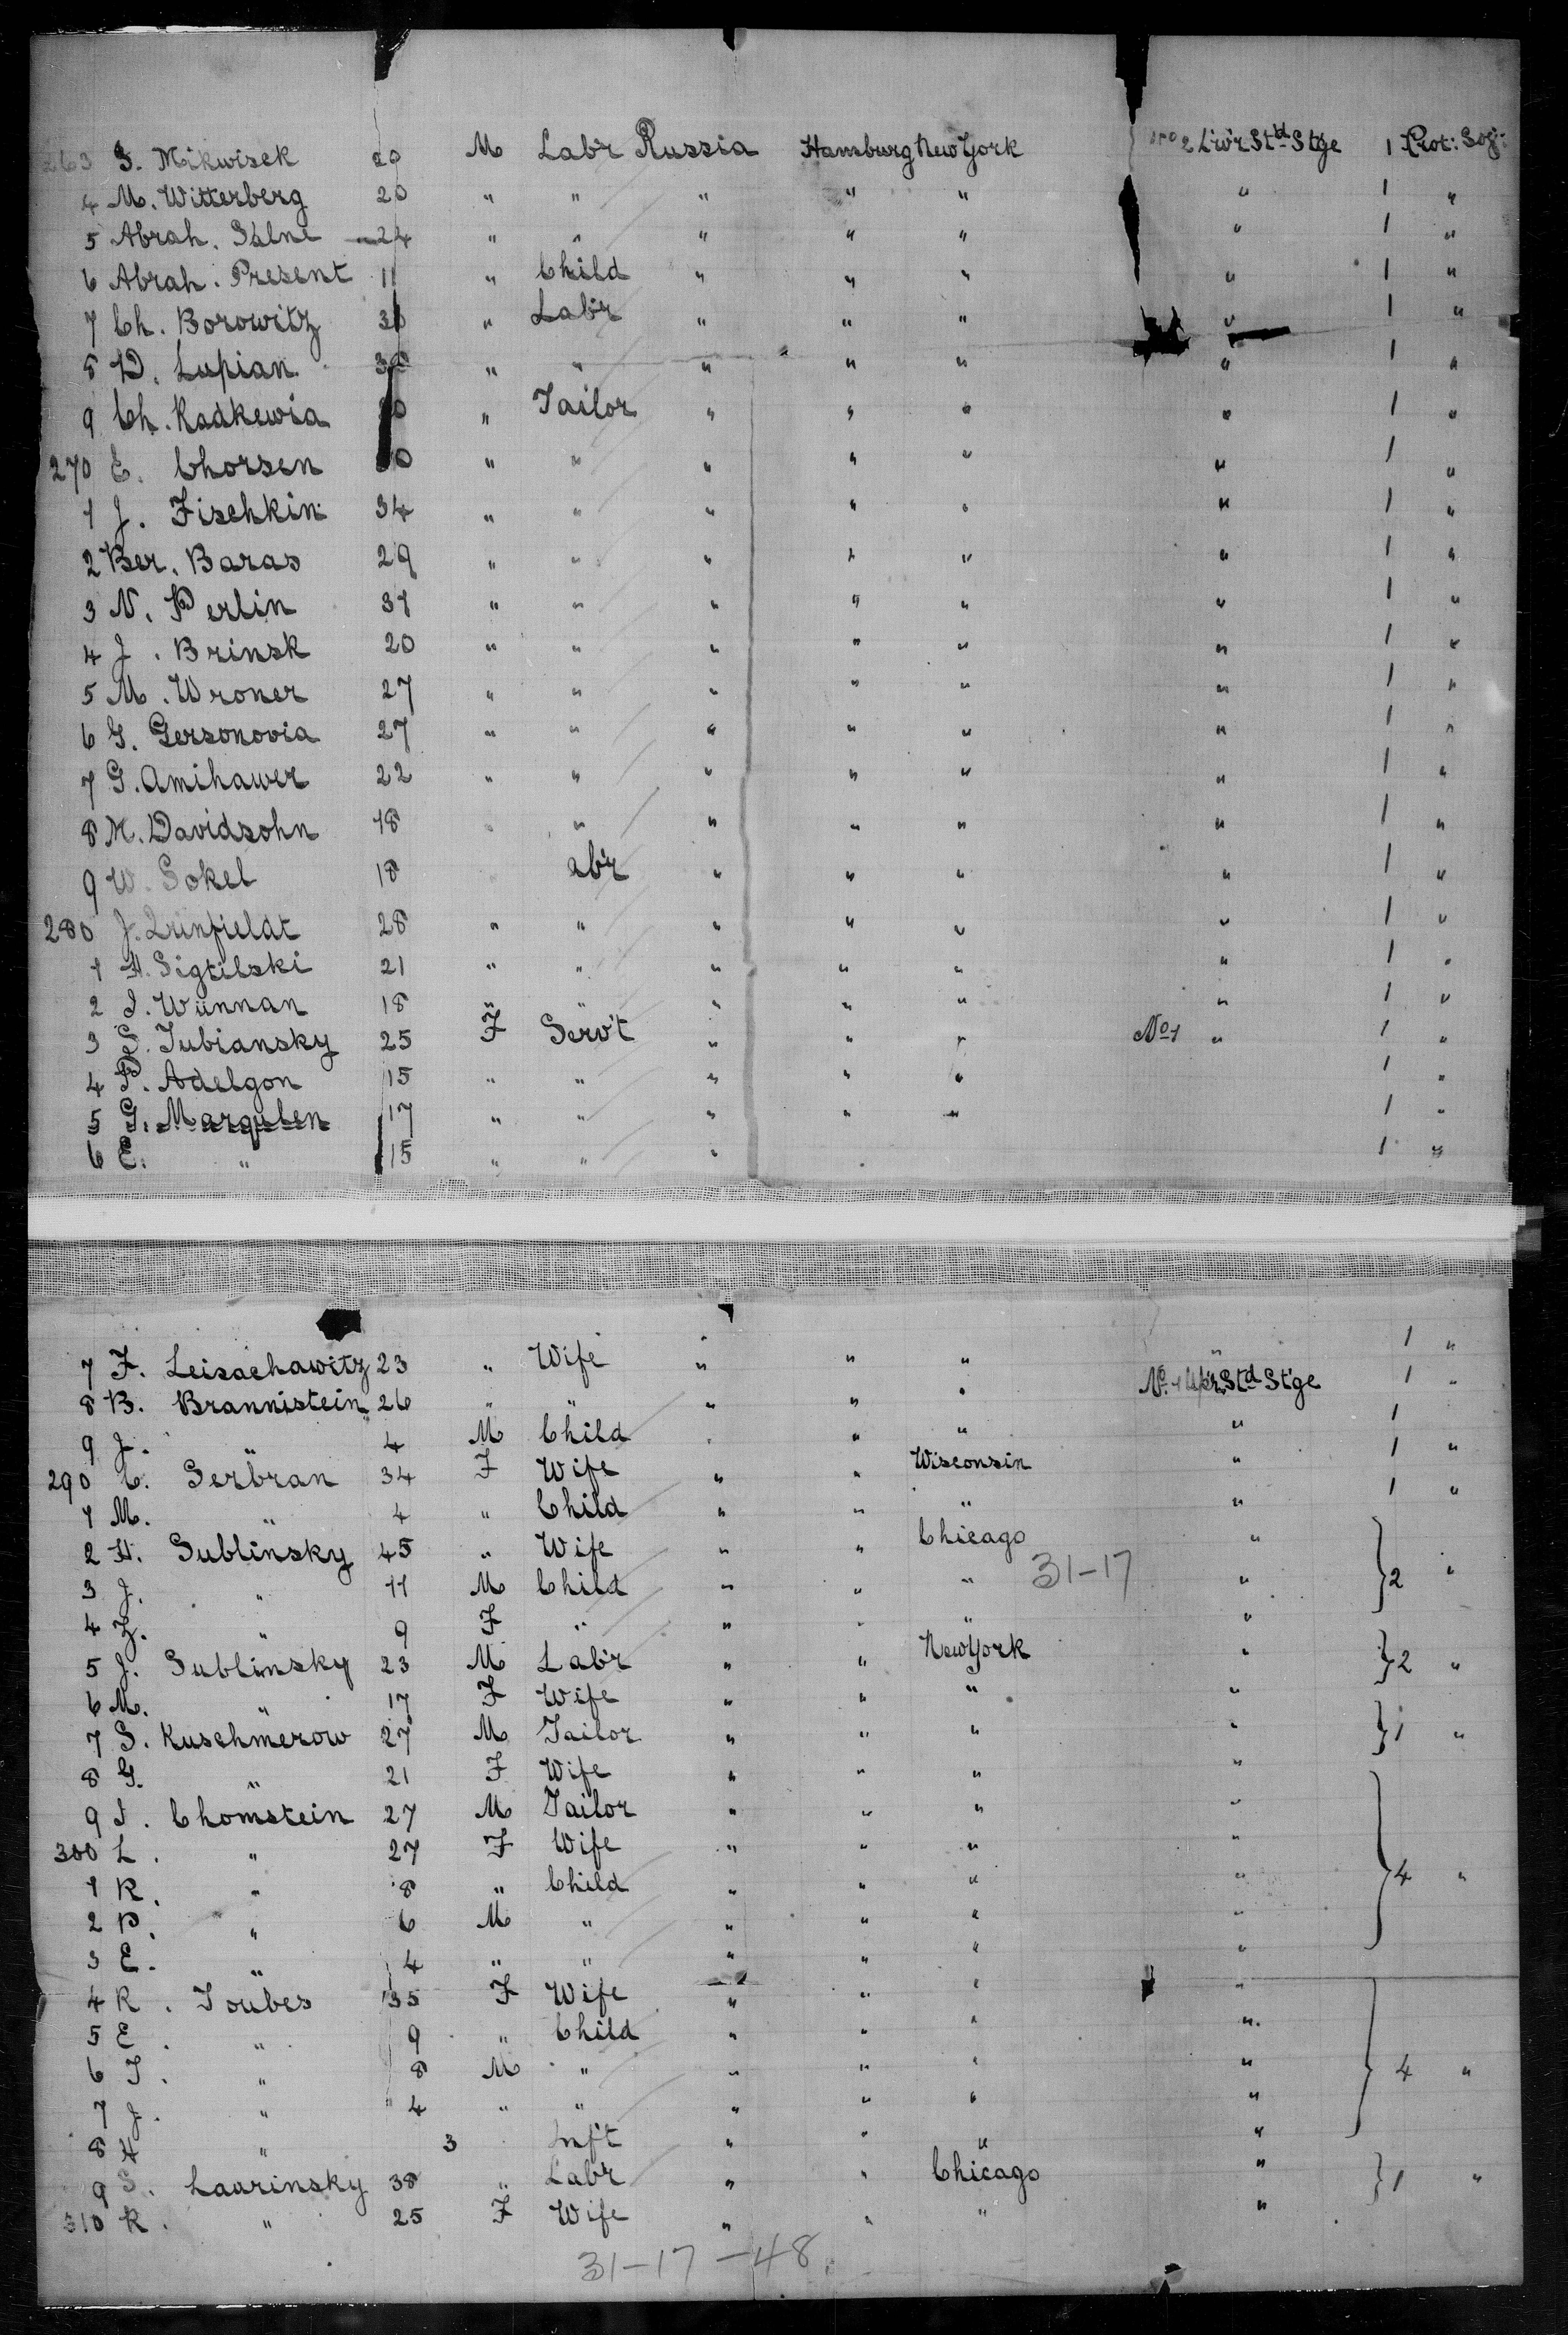 263 S. Mikwisek 20 M Labr Russia Hamburg New York No 2 Liv'r Stbd Stge 1 Prot: Soj:
4 M. Witterberg 20 " " " " " " 1 "
5 Abrah. Salne 24 " " " " " " 1 "
6 Abrah. Present 11 " Child " " " " 1 "
7 Ch. Borowitz 30 " Labr " " " " 1 "
8 D. Lupian " " " " " " 1 "
9 Ch. Radkewia " Tailor " " " " 1 "
270 E. Chorsen " " " " " " 1 "
1 J. Fischkin 34 " " " " " " 1 "
2 Ber. Baras 29 " " " " " " 1 "
3 N. Perlin 31 " " " " " " 1 "
4 J. Brinsk 20 " " " " " " 1 "
5 M. Wroner 27 " " " " " " 1 "
6 G. Gersonovia 27 " " " " " " 1 "
7 G. Amihawer 22 " " " " " " 1 "
8 M. Davidsohn 18 " " " " " " 1 "
9 W. Sokel 18 abr " " " " 1 "
280 J. 28 " " " " " " 1 "
1 H. Sigtilski 21 " " " " " " 1 "
2 I. Wünnan 18 " " " " " " 1 "
3 S. Tubiansky 25 F Serv't " " " No 1 " 1 "
4 P. Adelgon 15 " " " " " 1 "
5 G. Margulen 17 " " " " " 1 "
6 E. " 15 " " " 1 "
7 F. Leisachawitz 23 " Wife " " " " 1 "
8 B. Brannistein 26 " " " " " No. 1 Stbd Stge 1 "
9 J. " 4 M Child " " " " 1
290 C. Serbran 34 F Wife " " Wisconsin " 1 "
1 M. " 4 " Child " " " " 1 "
2 H. Sublinsky 45 " Wife " " Chicago "
3 J. " 11 M Child " " " 31-17 " } 2 "
4 Z. " 9 F " " " " "
5 J. Sublinsky 23 M Labr " " New York " } 2 "
6 M. " 17 F Wife " " " "
7 S. Kuschmerow 27 M Tailor " " " " } 1 "
8 G. " 21 F Wife " " " "
9 I. Chomstein 27 M Tailor " " " "
300 L. " 27 F Wife " " " "
1 R. " 8 " Child " " " " } 4 "
2 P. " 6 M " " " " "
3 E. " 4 " " " " " "
4 R. Toubes 35 F Wife " " " "
5 E. " 9 " Child " " " "
6 T. " 8 M " " " " " } 4 "
7 J. " 4 " " " " " "
8 H " 3 Inft " " " "
9 S. Laarinsky 38 " Labr " " Chicago " } 1 "
310 R. " 25 F Wife " " " "
31-17-48.